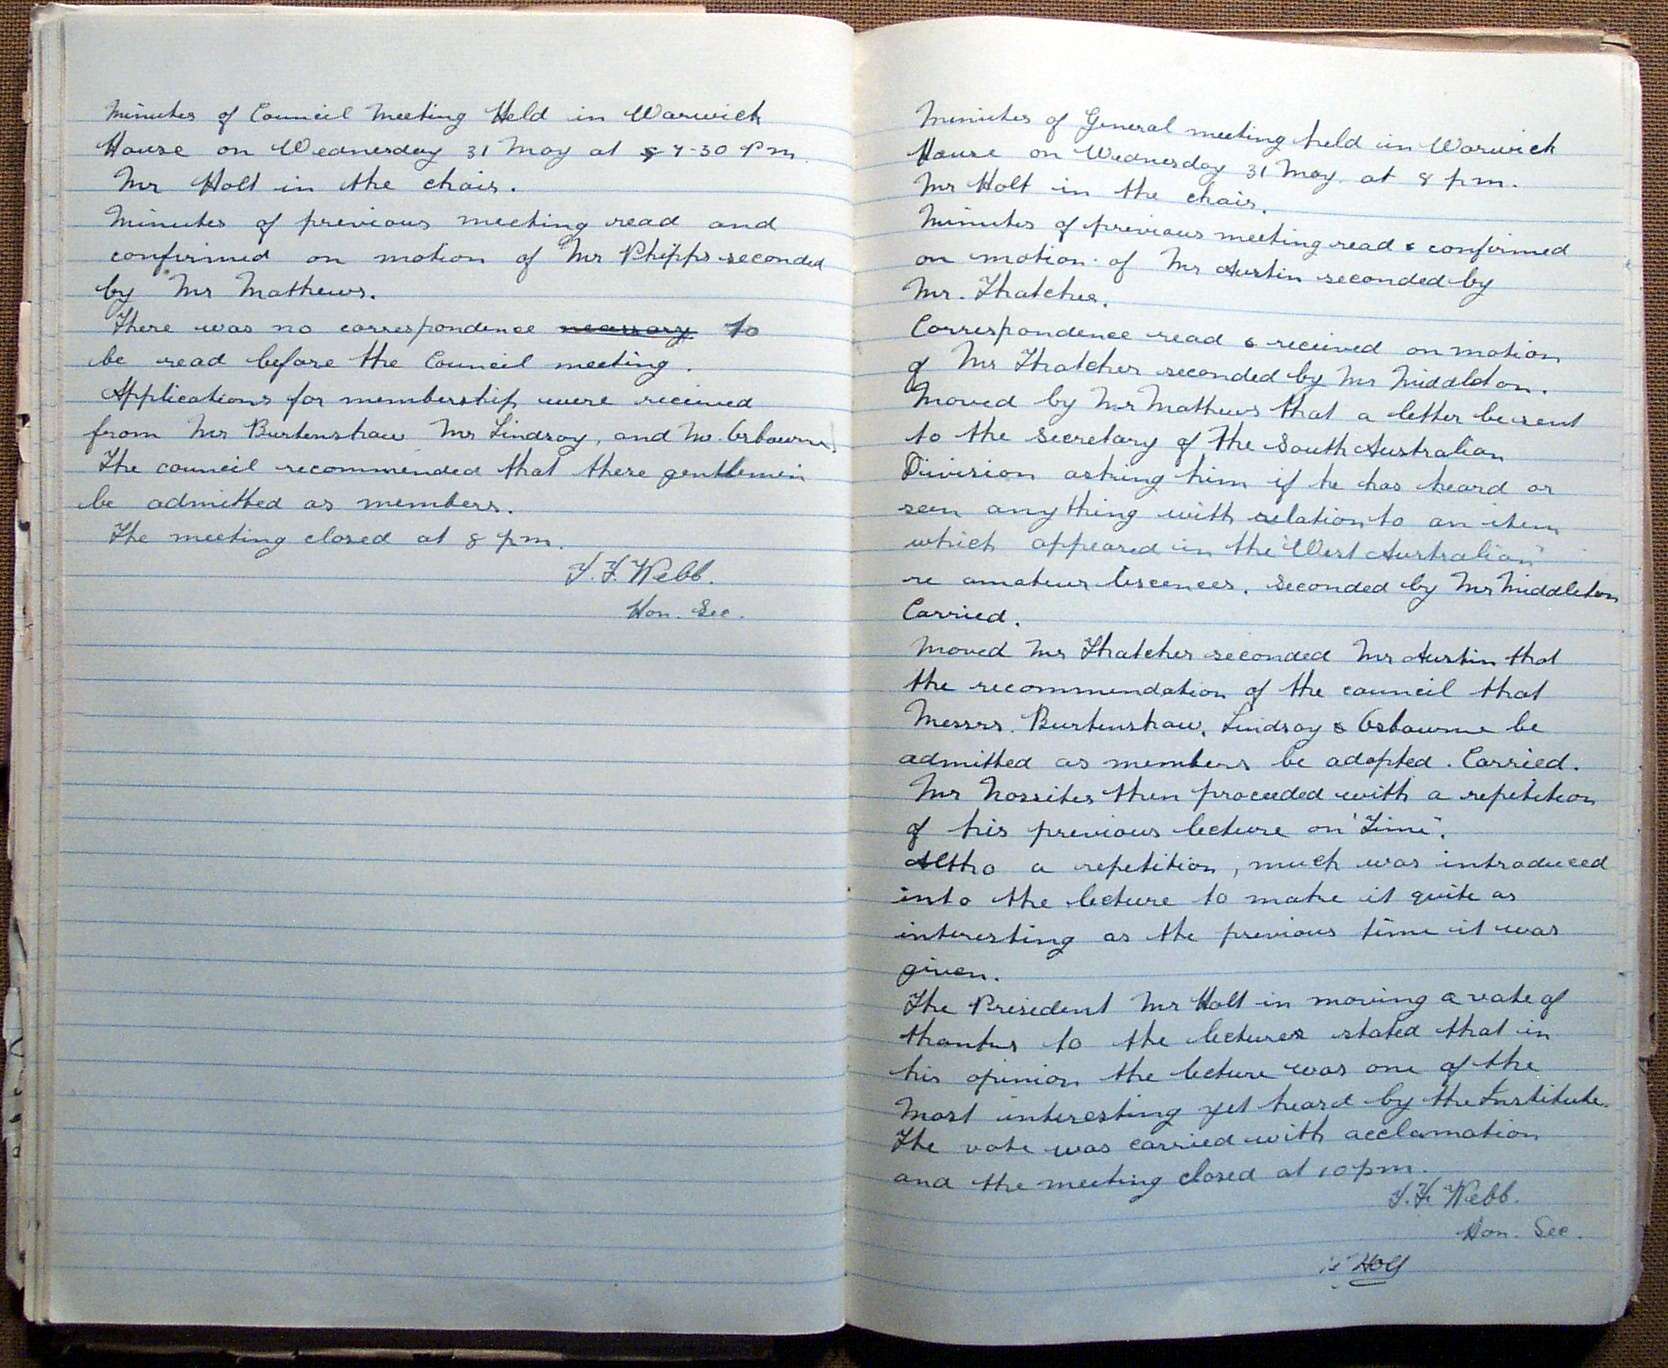 Minutes of Council Meeting Held in Warwick
House on Wednesday 31 May at 7-30 Pm.
Mr Holt in the chair.
Minutes of previous meeting read and
confirmed on motion of Mr Phipps seconded
by Mr Mathews.
There was no correspondence necessary to
be read before the Council meeting.
Applications for membership were received
from Mr Burtenshaw Mr Lindsay, and Mr. Osbourne
The council recommended that these gentlemen
be admitted as members.
The meeting closed at 8 pm.
Webb.
Hon. Sec.
Minutes of General meeting held in Warwick
House on Wednesday 31 May. at 8 pm.
Mr Holt in the chair.
Minutes of previous meeting read & confirmed
on motion of Mr Austin seconded by
Mr. Thatcher.
Correspondence read & received on motion
of Mr Thatcher seconded by Mr Middleton.
Moved by Mr Mathews that a letter be sent
to the Secretary of the South Australian
Division asking him if he has heard or
seen anything with relation to an item
which appeared in the "West Australian"
re amateur liscences. seconded by Mr Middleton
Carried.
Moved Mr Thatcher seconded Mr Austin that
the recommendation of the council that
Messrs. Burtenshaw, Lindsay & Osbourne be
admitted as members be adopted. Carried.
Mr Nossiter then proceeded with a repetition
of his previous lecture on "Time".
Altho a repetition, much was introduced
into the lecture to make it quite as
interesting as the previous time it was
given.
The President Mr Holt in moving a vote of
thanks to the lecturer stated that in
his opinion the lecture was one of the
most interesting yet heard by the Institute.
The vote was carried with acclamation
and the meeting closed at 10 pm.
Webb.
Hon. Sec.